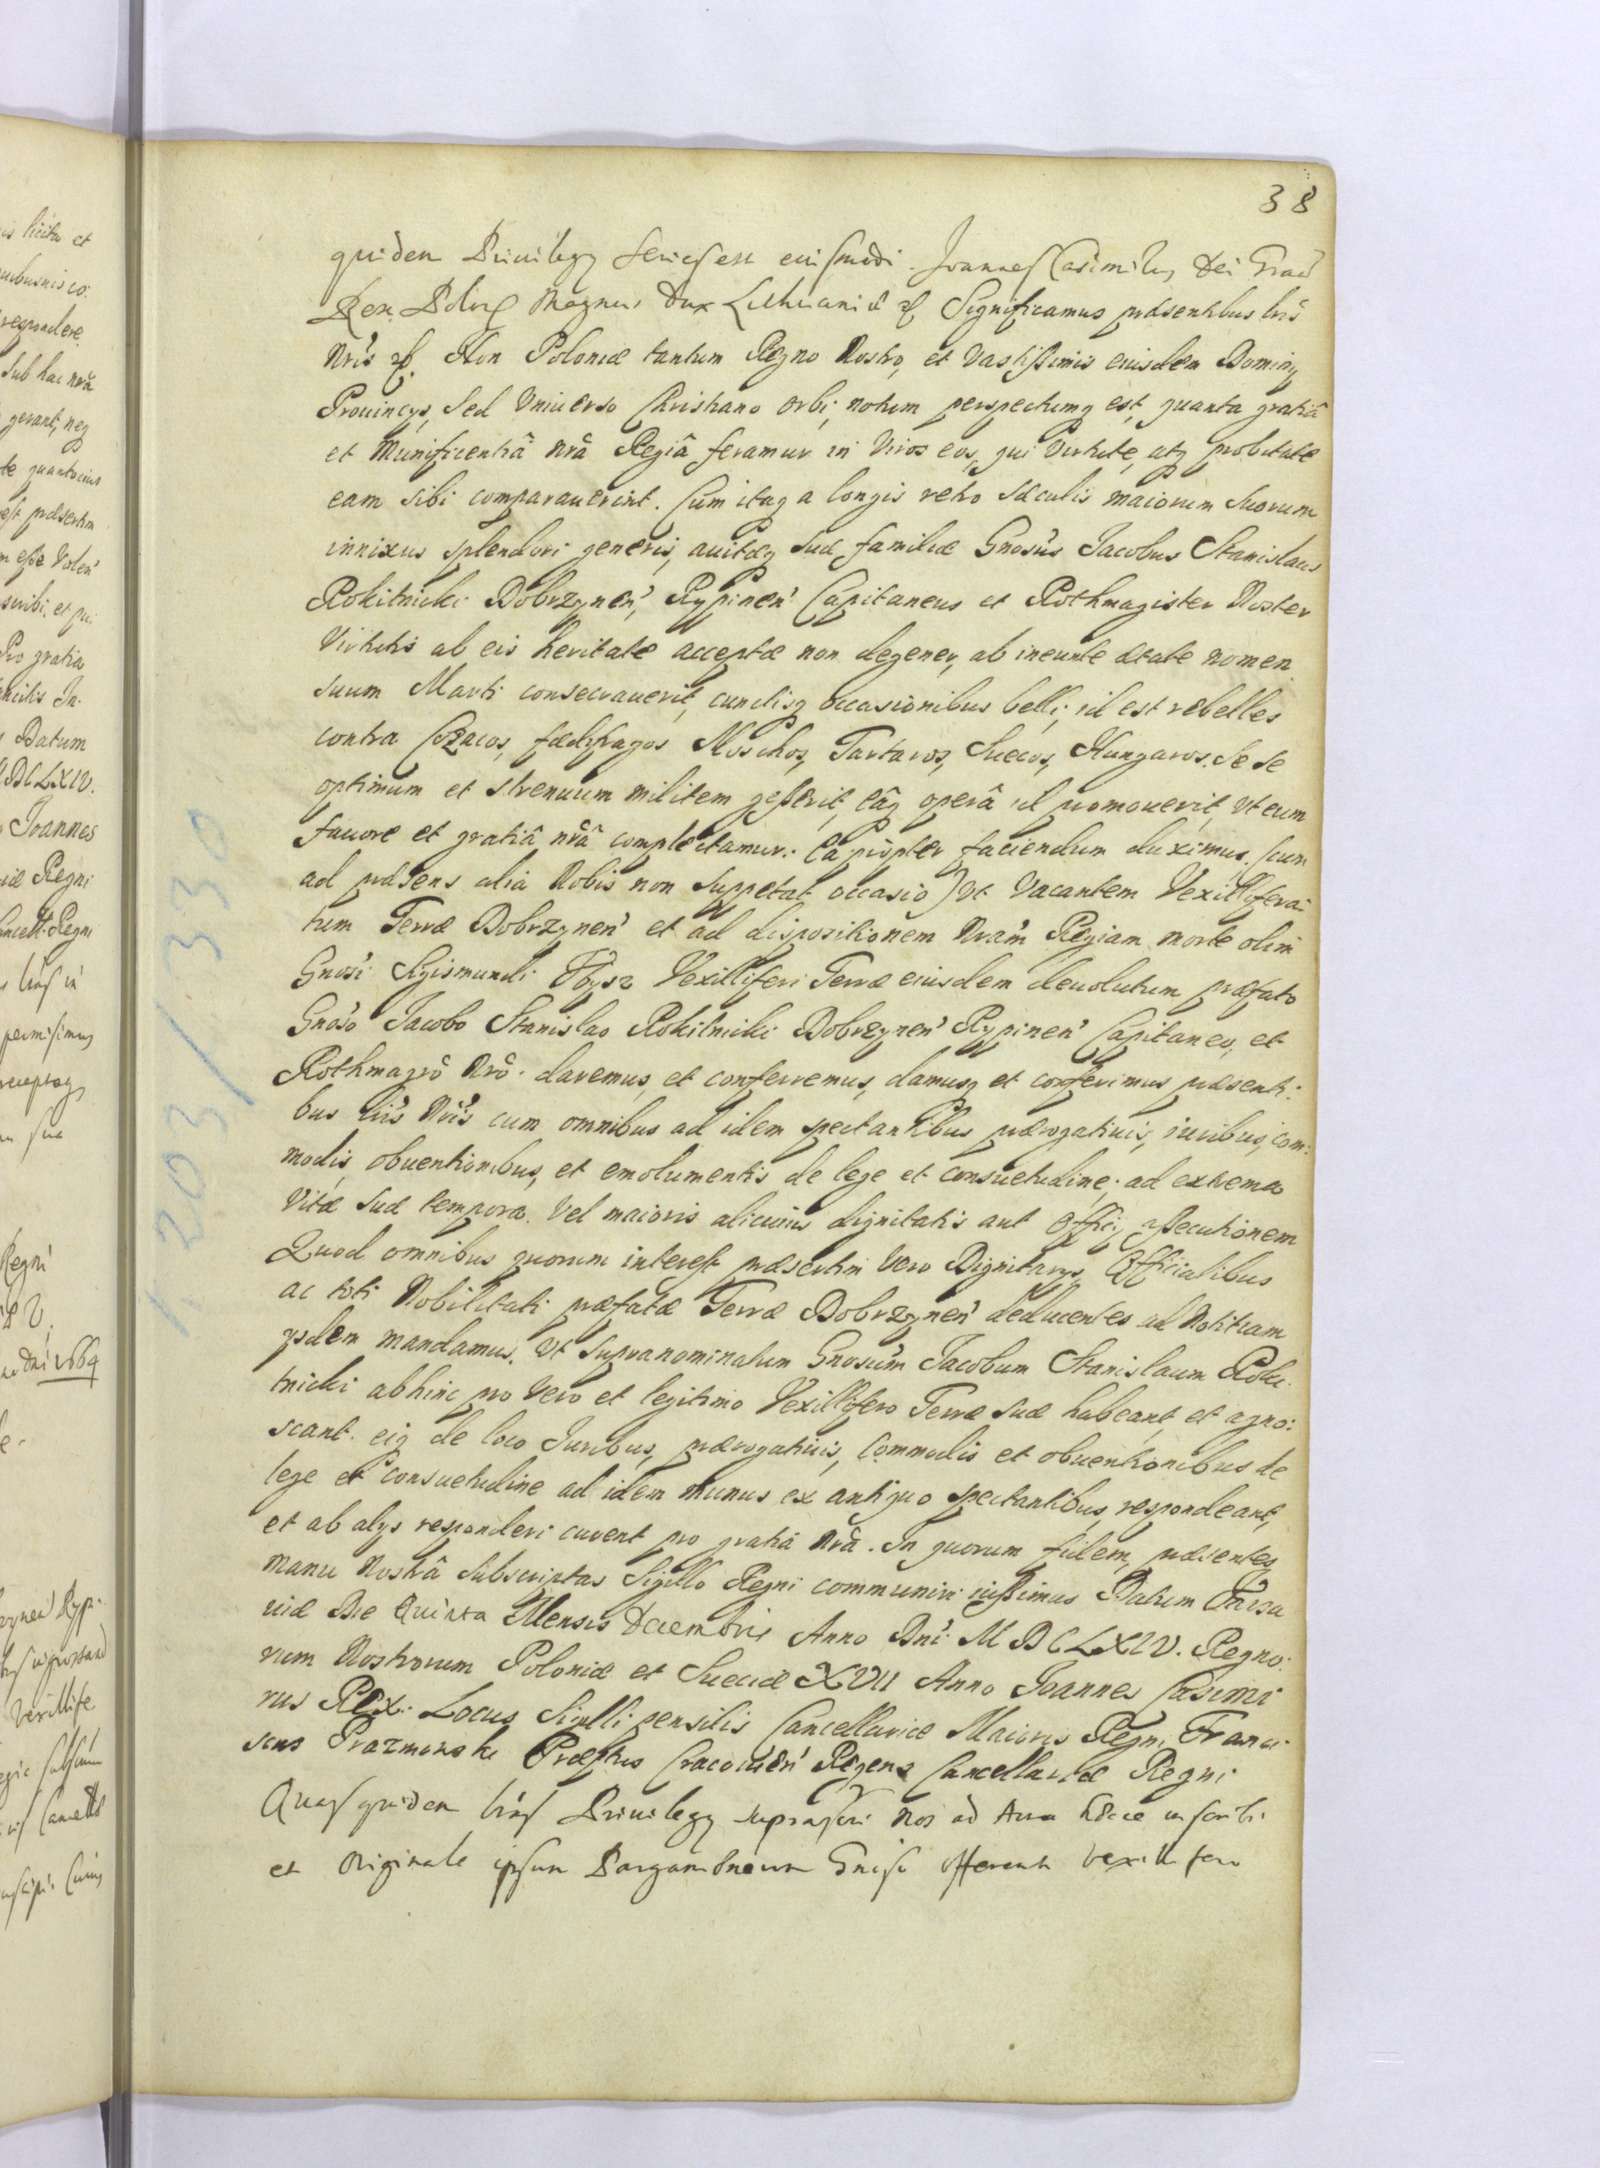 38
quidem Priuilegy series est euismodi. Joannes Casimirus Dei Graã
Rex Polon̄ Magnus Dux Lithuaniæ &c Significamus præsentibus lrīs
Nrīs &c. Non Poloniæ tantum Regno Nostro, et vastissimis eiusdem Dominij
Prouincijs, sed Vniuerso Christiano orbi, notum perspectumq est, quanta gratiâ
et Munificentiâ nrâ Regiâ feramur in Viros eos, qui Virtute, atq probitate
eam sibi comparauerint. Cum itaq a longis retro sæculis maiorum suorum
innixus splendori generis, auitæq suæ familiæ Gnosus Jacobus Stanislaus
Rokitnicki Dobrzynen̄, Rypinen̄ Capitaneus et Rothmagister Noster
Virtutis ab eis heritatæ acceptæ non degener, ab ineunte ætate nomen
suum Marti consecrauerit, cunctisq occasionibus belli, id est rebelles
contra Cozacos, fœdifragos Moschos, Tartaros, Suecos, Hungaros. Se se
optimum et strenuum militem gesserit, eâq operâ id promouerit, vt eum
fauore et gratiâ nrâ complectamur. Ea propter faciendum duximus. (cum
ad præsens alia Nobis non suppetat occasio) vt Vacantem Vexillifera-
tum Terræ Dobrzynen̄ et ad dispositionem Nram̄ Regiam morte olim
Gnosi Sigismundi Vexilliferi Terræ eiusdem deuolutum præfato
Gnoso Jacobo Stanislao Rokitnicki Dobrzynen̄ Rypinen̄ Capitaneo, et
Rothmagrō Nrō. daremus, et conferremus, damusq et conferimus præsenti:
bus lrīs Nrīs cum omnibus ad idem spectantibus prærogatiuis, iuribus, com:
modis, obuentionibus, et emolumentis de lege et consuetudine; ad extrema
Vitæ suæ tempora. Vel maioris alicuius dignitatis aut Officij assecutionem
Quod omnibus quorum interest præsertim vero Dignitarijs, Officialibus
ac toti Nobilitati præfatæ Terræ Dobrzynen̄ deducentes ad Notitiam
ysdem mandamus. Vt supranominatum Gnosum̄ Jacobum Stanislaum Roki-
tnicki abhinc pro Vero et legitimo Vexillifero Terræ suæ habeant, et agno:
scant. eiq de loco Juribus, prærogatiuis, Commodis et obuentionibus de
lege et consuetudine ad idem munus ex antiquo spectantibus, respondeant,
et ab alijs responderi curent pro gratiâ Nrâ. In quorum fidem, præsentes
manu Nostrâ Subscriptas Sigillo Regni communiri iussimus Datum Varsa
uiæ Die Quinta Mensis Decembris Anno Dni̅ M D C LXIV. Regno:
rum Nostrorum Poloniæ et Sueciæ XVII Anno Joannes Casimi
rus Rex. Locus Sigilli pensilis Cancellariæ Maioris Regni Franci-
scus Prazmowski Præptus Cracouien̄ Regens Cancellariæ Regni
Quas quidem lrās Priuilegy suprascri Nos ad Acta hæce inscribi
et Originale ipsum Pargameneum offerenti vexillifero
1203/330